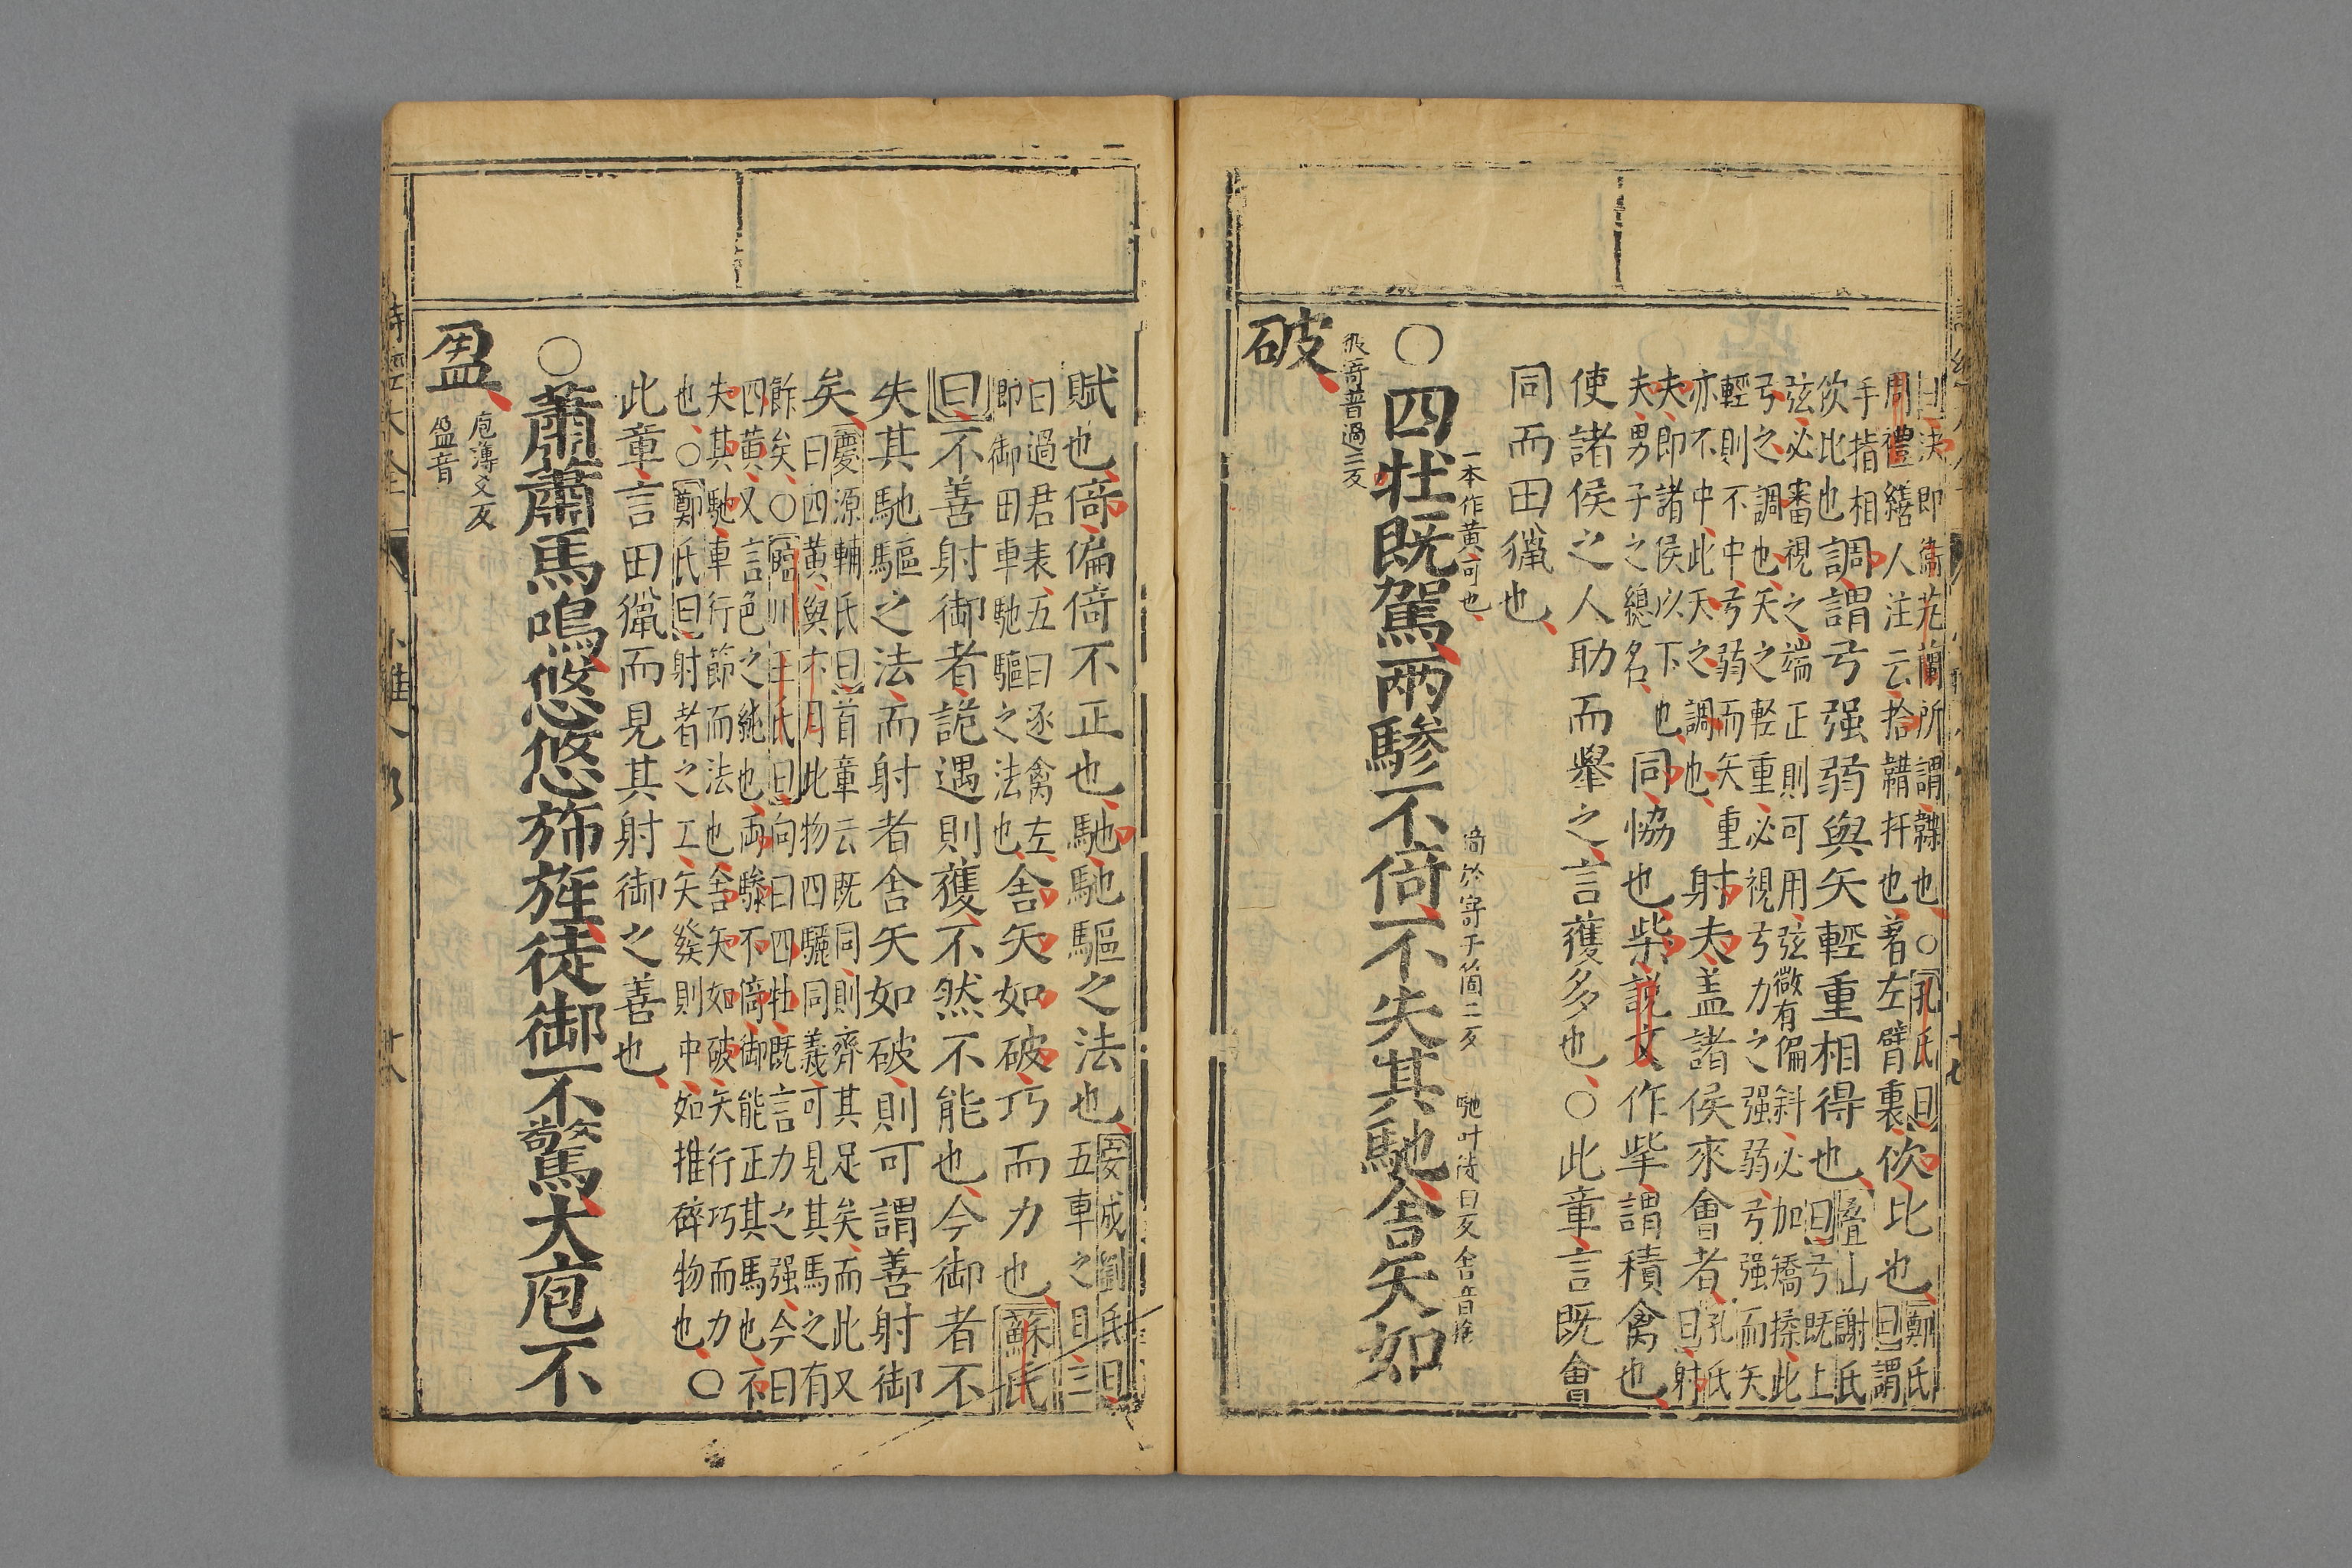 曰決即衛芄蘭所謂韘也○孔氏曰
周禮繕人注云拾鞲扞也著左臂裏
佽比也
鄭氏
曰謂
手指相
佽比也
調謂弓强弱與矢輕重相得也
疊山謝氏
曰弓既上
弦必審視之端正則可用弦微有偏斜必加矯揉此
弓之調也矢之輕重必視弓力之强弱弓强而矢
輕則不中弓弱而矢重
亦不中此矢之調也
射夫盖諸侯來會者
孔氏
曰射
夫即諸侯以下也
夫男子之緫名
同協也柴說文作㧘謂積禽也
使諸侯之人助而舉之言獲多也○此章言既會
同而田獵也
一本作黄可也
倚於寄于箇二反
馳叶徒曰反舍音捨
○四牡既駕兩驂不倚不失其馳舍矢如
破
普過二反
賦也倚偏倚不正也馳馳驅之法也
安成劉氏曰
五車之目三
曰過君表五曰逐禽左
即御田車馳驅之法也
舍矢如破巧而力也蘇氏
曰不善射御者詭遇則獲不然不能也今御者不
失其馳驅之法而射者舍矢如破則可謂善射御
矣
慶源輔氏曰首章云既同則齊其足矣而此又
夫曰四黄與六月比物四驪同義可見其馬之有
餘矣○臨川王氏曰向曰四牡既言力之强今曰
四黄又言色之純也兩驂不倚御能正其馬也不
失其馳車行節而法也舍矢如破矢行巧而力
也○鄭氏曰射者之工矢發則中如推碎物也
○
此章言田獵而見其射御之善也
○蕭蕭馬鳴悠悠旆旌徒御不驚大庖不
盈
庖薄交反
盈音
詩經大全 小雅 十八